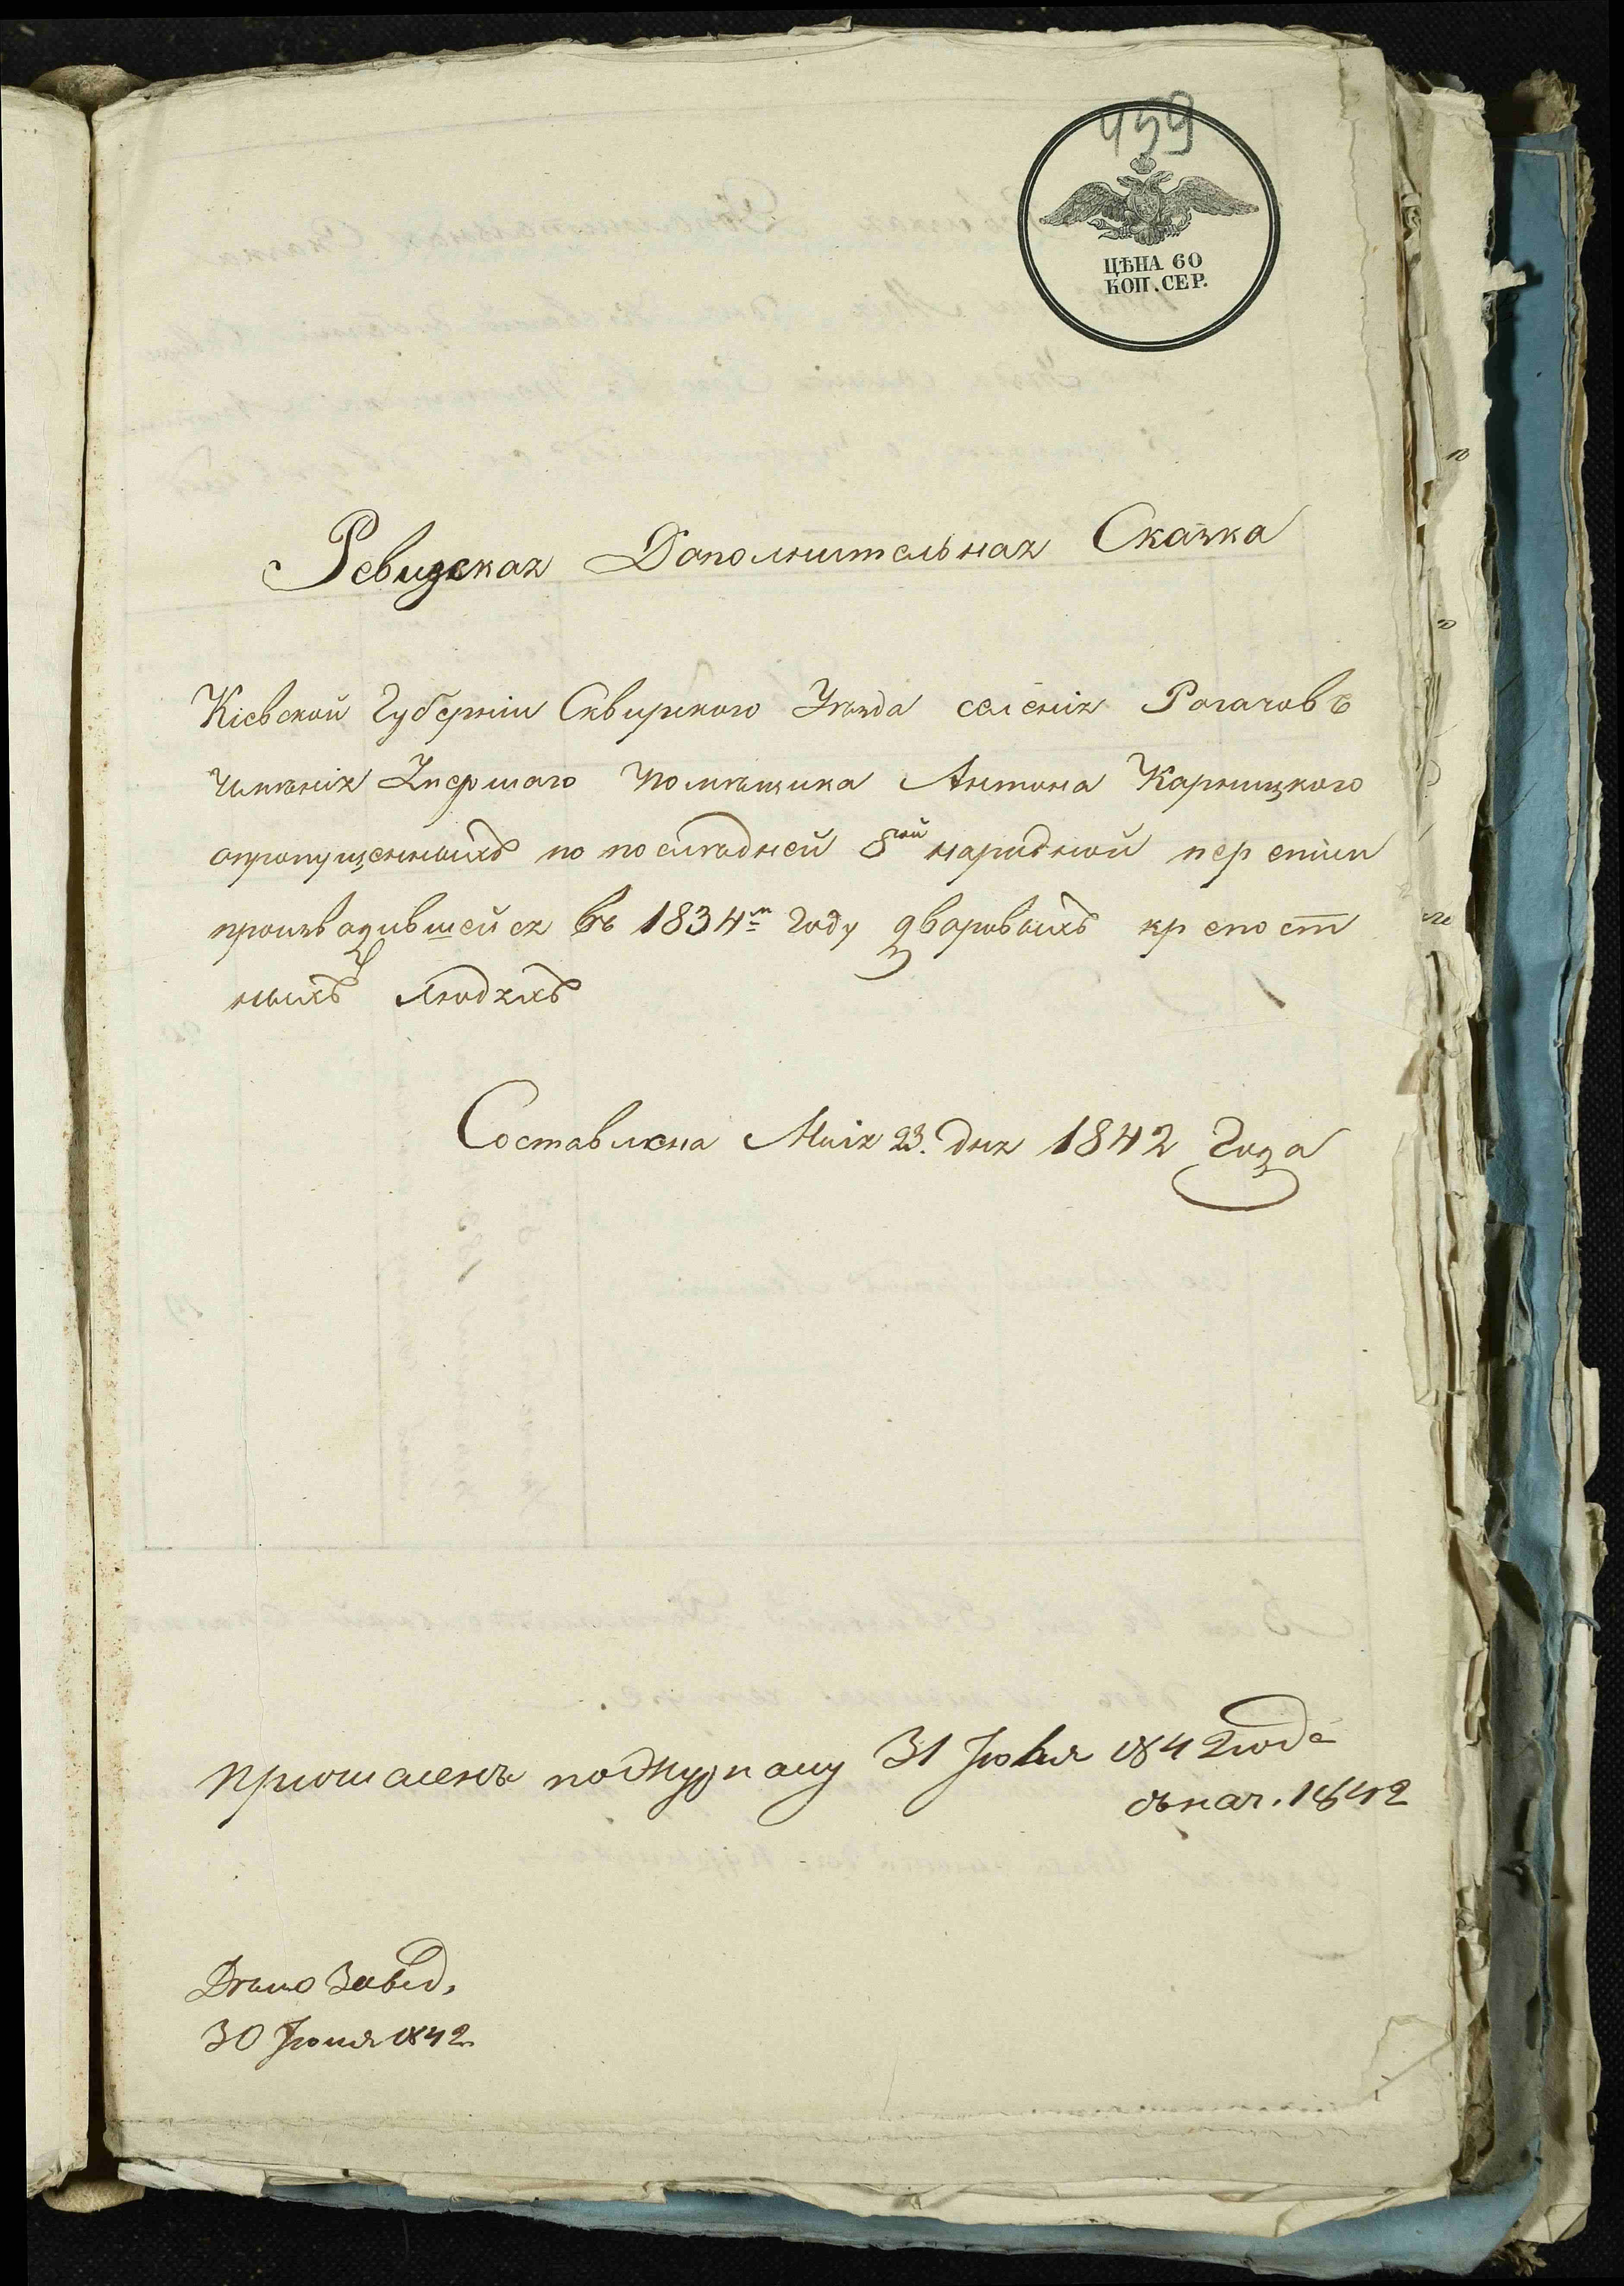 459
ЦѢНА 60
КОП. СЕР.
Ревизская Дополнительная Сказка
Кіевской Губерніи Сквирскаго Уѣзда селенія Рогачовъ
имѣнія Умершаго Помѣщика Антона Карницкого
опропущенныхъ по послѣдней 8ой народной переписи
производившейся въ 1834м Году дворовыхъ крепост
ныхъ людяхъ
Составлена Маія 23. дня 1842 Года
31 Іюля 1842 года
1842
30 Іюня 1842